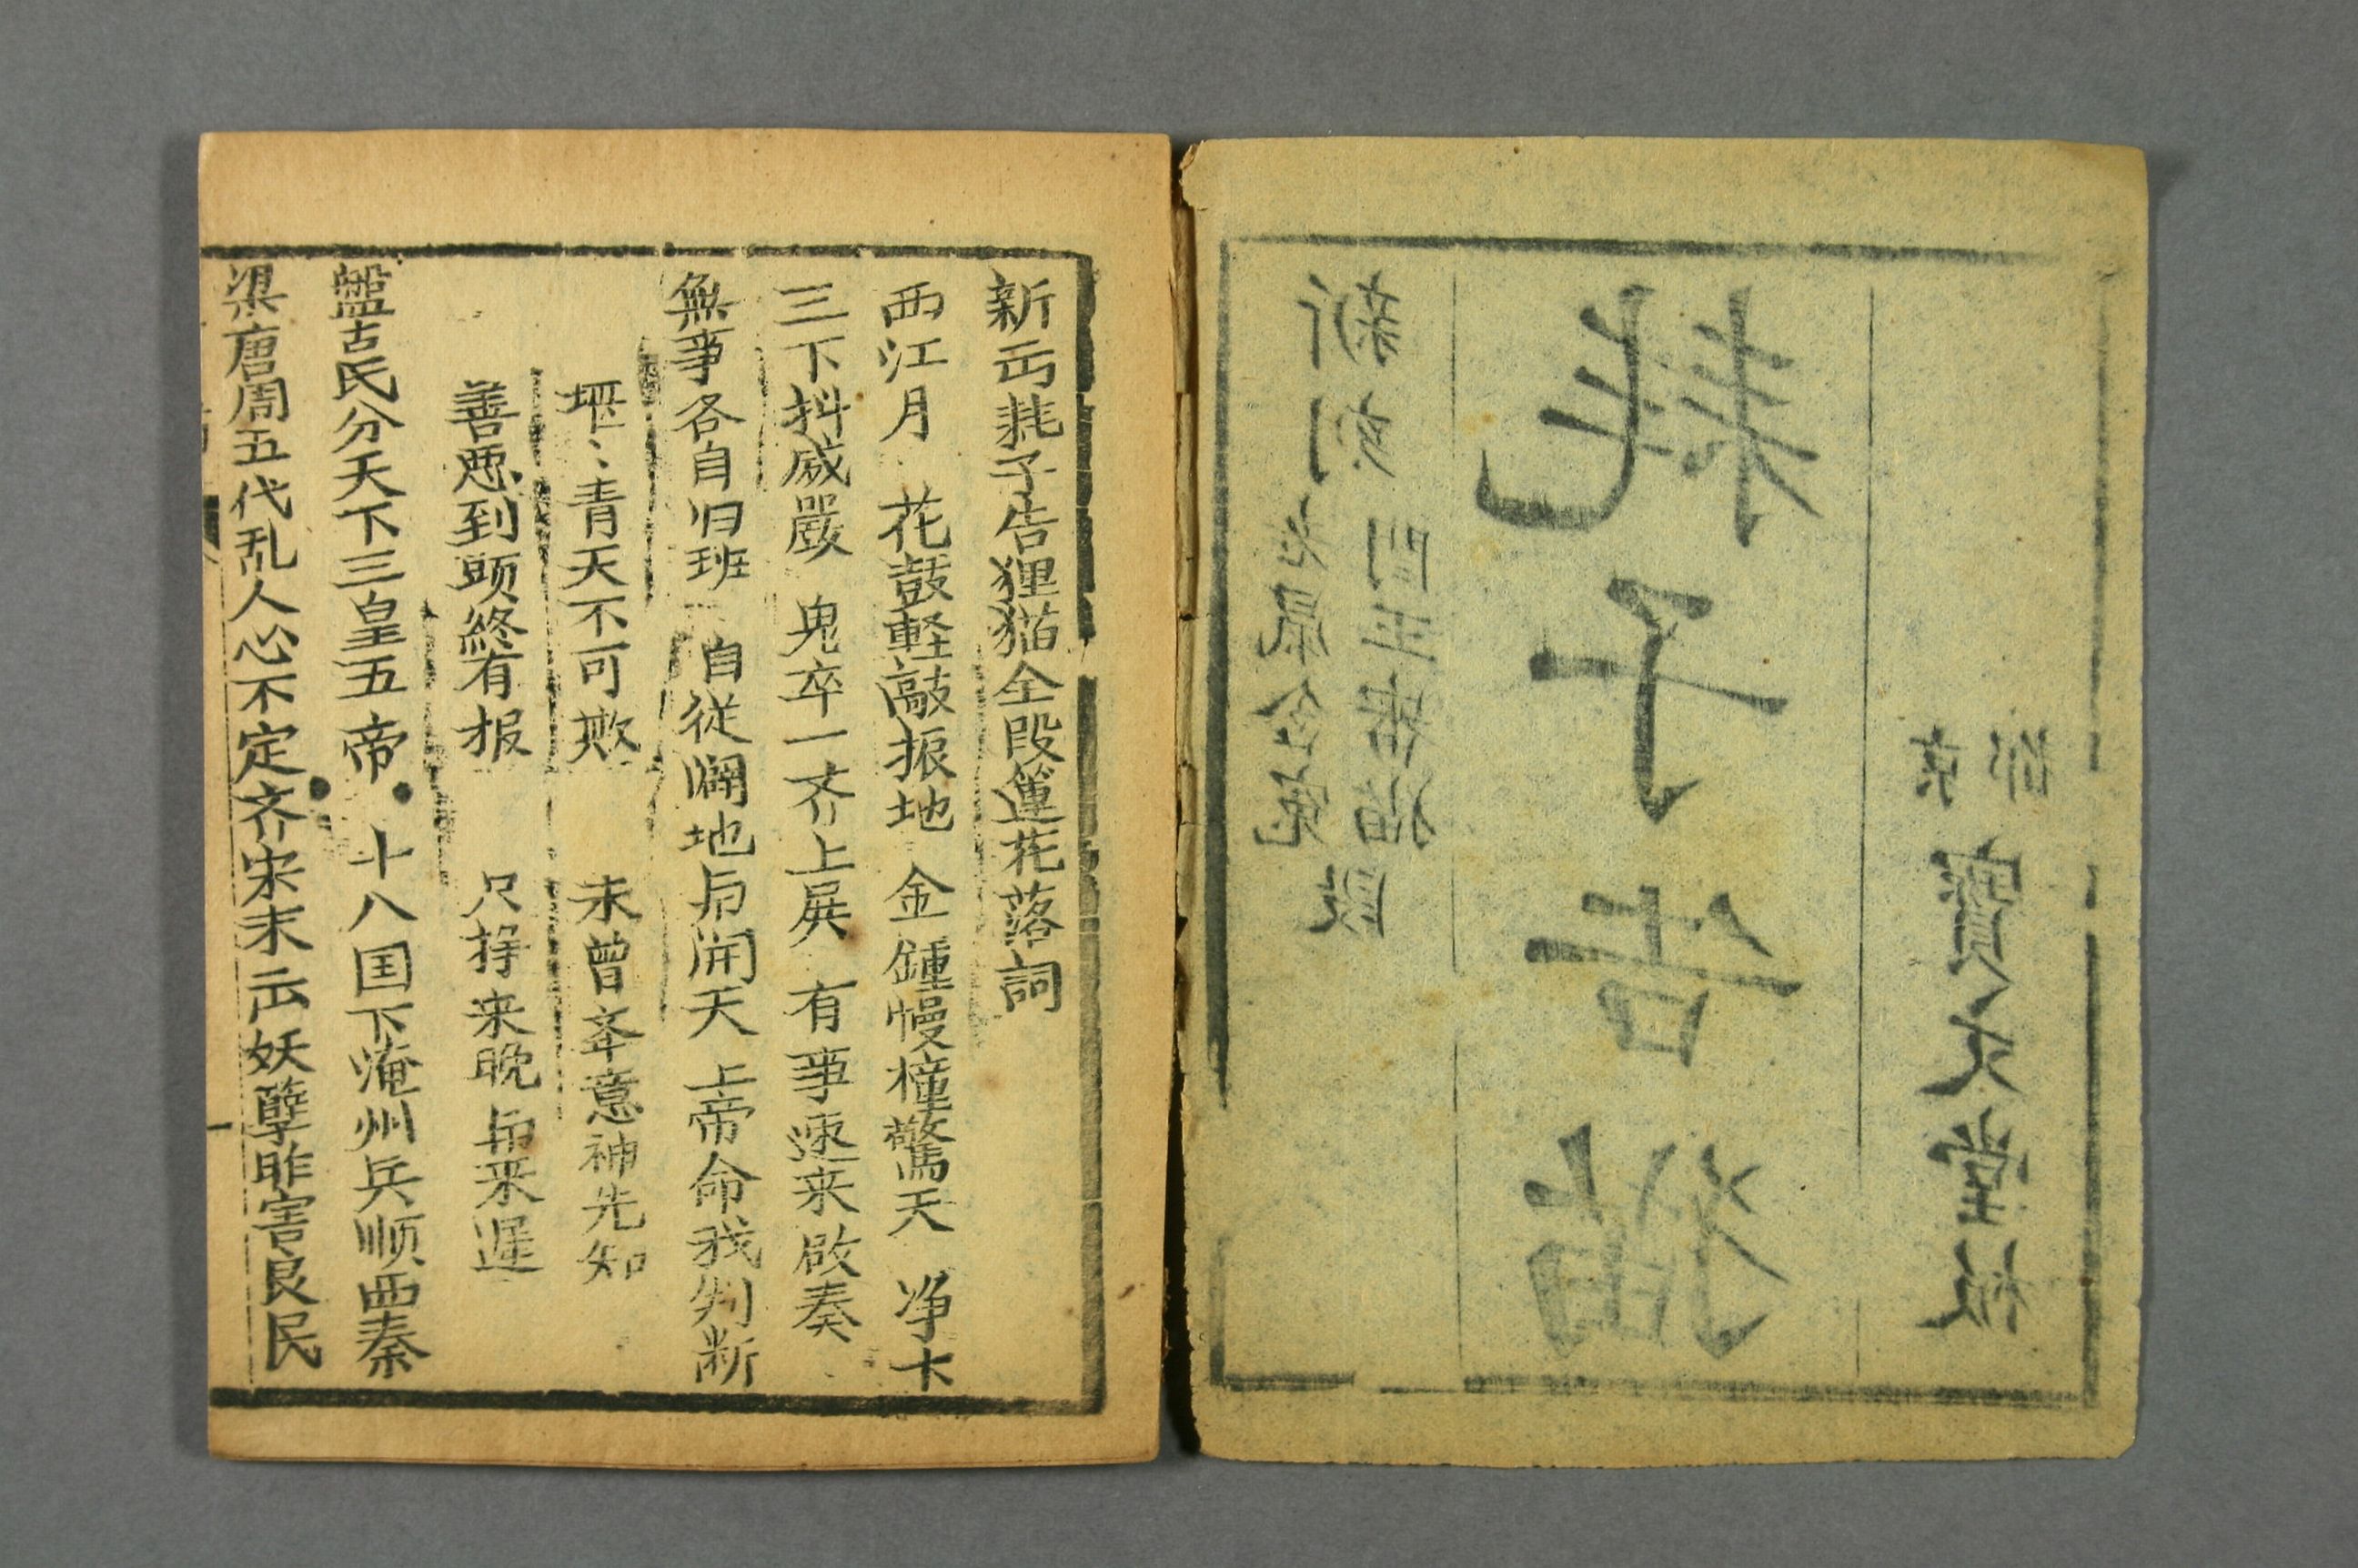 新刻
老鼠含冤
閆王審猫段
耗子告猫
京都
寶文堂板
新出耗子告狸猫全段蓮花落詞
西江月 花鼓軽敲振地 金鍾慢撞驚天 净
三下抖威嚴 鬼卒一齐上展 有事速来啟奏
無事各自归班 自從闢地与開天 上帝命我判断
堪〻青天不可欺 未曾舉意神先知
善恶到頭終有报 只掙来晚与来遲
盤古氏分天下三皇五帝 十八国下滝州兵顺西秦
梁唐周五代乱人心不定齐宋末出妖孽昨害良民
一